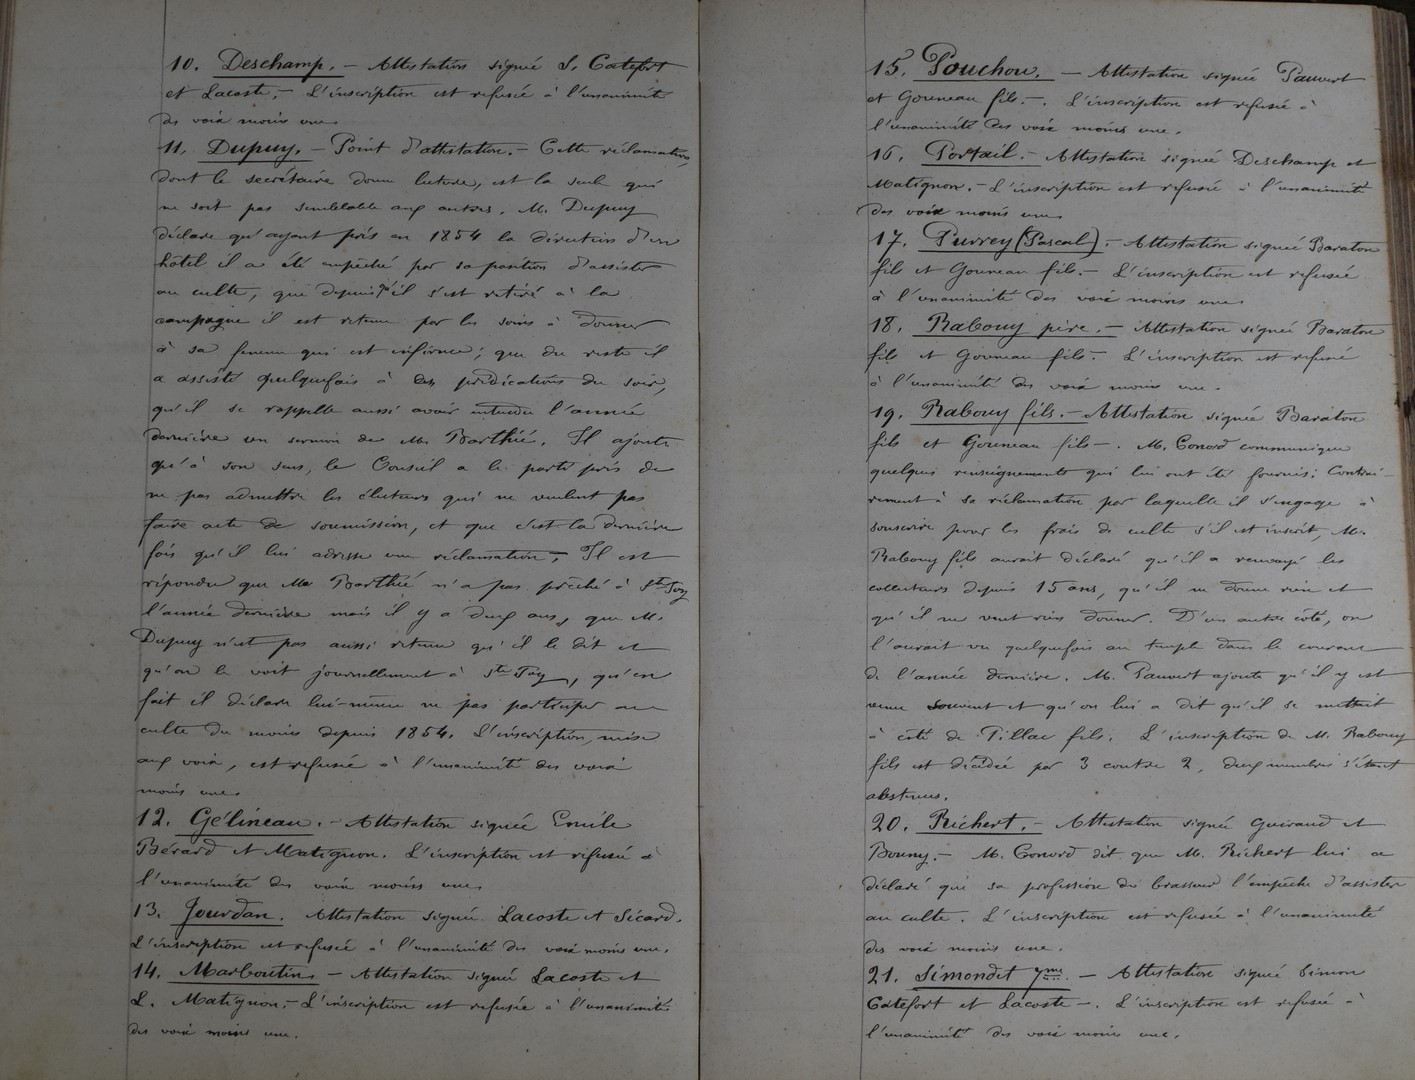 10. Deschamp. — Attestation signée S. Catefort
et Lacoste. — L'inscription est refusée à l'unanimité
des voix moins une.
11. Dupuy. — Point d'attestation. — Cette réclamation,
dont le secrétaire donne lecture, est la seule qui
ne soit pas semblable aux autres. M. Dupuy
déclare qu'ayant pris en 1854 la direction d'un
hôtel il a été empêché par sa position d'assister
au culte, que depuis qu'il s'est retiré à la
campagne il est retenu par les soins à donner
à sa femme qui est infirme ; que du reste il
a assisté quelquefois à des prédications du soir,
qu'il se rappelle aussi avoir entendu l'année
dernière un sermon de M. Barthié. Il ajoute
qu'à son sens, le Conseil a le parti pris de
ne pas admettre les électeurs qui ne veulent pas
faire acte de soumission, et que c'est la dernière
fois qu'il lui adresse une réclamation. — Il est
répondu que M. Barthié n'a pas prêché à Ste Foy
l'année dernière mais il y a deux ans, que M.
Dupuy n'est pas aussi retenu qu'il le dit et
qu'on le voit journellement à Ste Foy, qu'en
fait il déclare lui-même ne pas participer au
culte du moins depuis 1854. L'inscription, mise
aux voix, est refusée à l'unanimité des voix
moins une.
12. Gélineau. — Attestation signée Emile
Bérard et Matignon. L'inscription est refusée à
l'unanimité des voix moins une.
13. Jourdan. Attestation signée Lacoste et Sicard.
L'inscription est refusée à l'unanimité des voix moins une.
14. Marboutin — Attestation signée Lacoste et
L. Matignon. — L'inscription est refusée à l'unanimité
des voix moins une.
15. Pouchou. — Attestation signée Pauvert
et Gouneau fils. — L'inscription est refusée à
l'unanimité des voix moins une.
16. Portail. — Attestation signée Deschamp et
Matignon. — L'inscription est refusée à l'unanimité
des voix moins une
17. Purrey (Pascal). — Attestation signée Baraton
fils et Gouneau fils. — L'inscription est refusée
à l'unanimité des voix moins une.
18. Rabouy père. — Attestation signée Baraton
fils et Gouneau fils. — L'inscription est refusée
à l'unanimité des voix moins une.
19. Rabouy fils. — Attestation signée Baraton
fils et Gouneau fils —. M. Conord communique
quelques renseignements qui lui ont été fournis : Contrai-
rement à sa réclamation par laquelle il s'engage à
souscrire pour les frais de culte s'il est inscrit, M.
Rabouy fils aurait déclaré qu'il a renvoyé les
collecteurs depuis 15 ans, qu'il ne donne rien et
qu'il ne veut rien donner. D'un autre côté, on
l'aurait vu quelquefois au temple dans le courant
de l'année dernière. M. Pauvert ajoute qu'il y est
venu souvent et qu'on lui a dit qu'il se mettait
à côté de Pillac fils. L'inscription de M. Rabouy
fils est décidée par 3 contre 2, deux membres s'étant
abstenus.
20. Richert. — Attestation signée Guiraud et
Bouny. — M. Conord dit que M. Richert lui a
déclaré que sa profession de brasseur l'empêche d'assister
au culte. L'inscription est refusée à l'unanimité
des voix moins une.
21. Simondet — Attestation signée Simon
Catefort et Lacoste —. L'inscription est refusée à
l'unanimité des voix moins une.